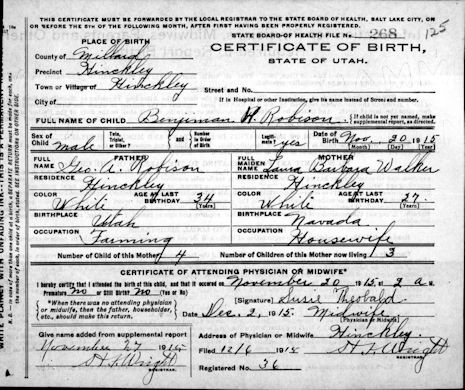 THIS CERTIFICATE MUST BE FORWARDED BY THE LOCAL REGISTRAR TO THE STATE BOARD OF HEALTH, SALT LAKE CITY, ON
OR BEFORE THE 5TH OF THE FOLLOWING MONTH, AFTER FIRST HAVING BEEN PROPERLY REGISTERED.
PLACE OF BIRTH
STATE BOARD OF HEALTH FILE No. 268 125
County of Millard
CERTIFICATE OF BIRTH,
STATE OF UTAH.
Precinct Hinckley
Town or Village of Hinckley
Street and No.
City of
If in Hospital or other Institution, give its name instead of Street and number.
FULL NAME OF CHILD Benjiman H. Robison
If child is not yet named, make supplemental report, as directed.
Sex of Child male
Twin, Triplet, or Other?
and
Number in Order of Birth
Legitimate? yes
Date of Birth Nov. 30 1915
(Month) (Day) (Year)
FATHER
FULL NAME Geo. A. Robison
MOTHER
FULL MAIDEN NAME Laura Barbara Walker
RESIDENCE Hinckley
RESIDENCE Hinckley
COLOR White
AGE AT LAST BIRTHDAY 34 (Years)
COLOR White
AGE AT LAST BIRTHDAY 27 (Years)
BIRTHPLACE Utah
BIRTHPLACE Navada
OCCUPATION Farming
OCCUPATION Housewife
Number of Child of this Mother 4
Number of Children of this Mother now living 3
CERTIFICATE OF ATTENDING PHYSICIAN OR MIDWIFE*
I hereby certify that I attended the birth of this child, and that it occured on November 30 1915, at 2 a M.
Premature No or Still Birth No (Yes or No)
[Signature] Susie Theobald
*When there was no attending physician or midwife, then the father, householder, etc., should make this return.
Date Dec. 2, 1915. Midwife
(Physician or Midwife)
Give name added from supplemental report
November 27 1915
REGISTRAR.
Address Hinckley
Filed 12/6 1915
REGISTRAR.
Registered No. 36